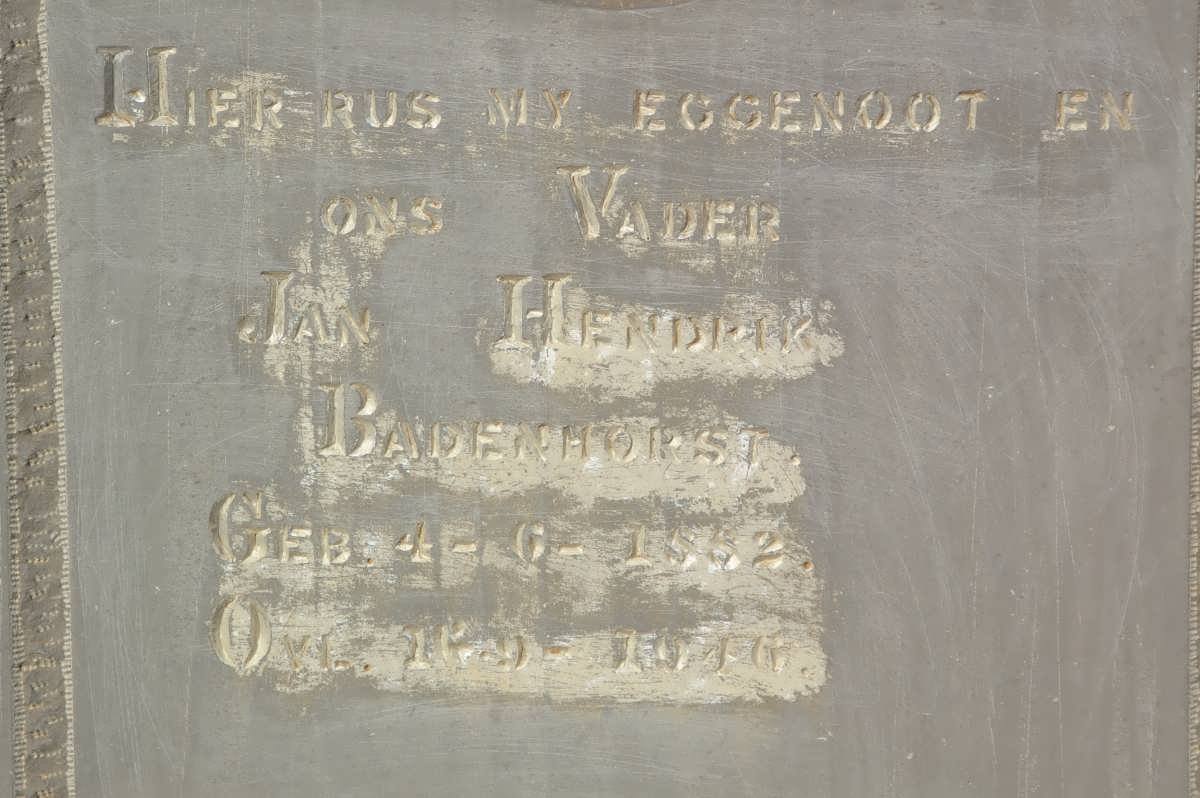 HIER RUS MY EGGENOOT EN
ONS VADER
JAN HENDRIK
BADENHORST.
GEB. 4-6-1882.
OVL. 9-1946